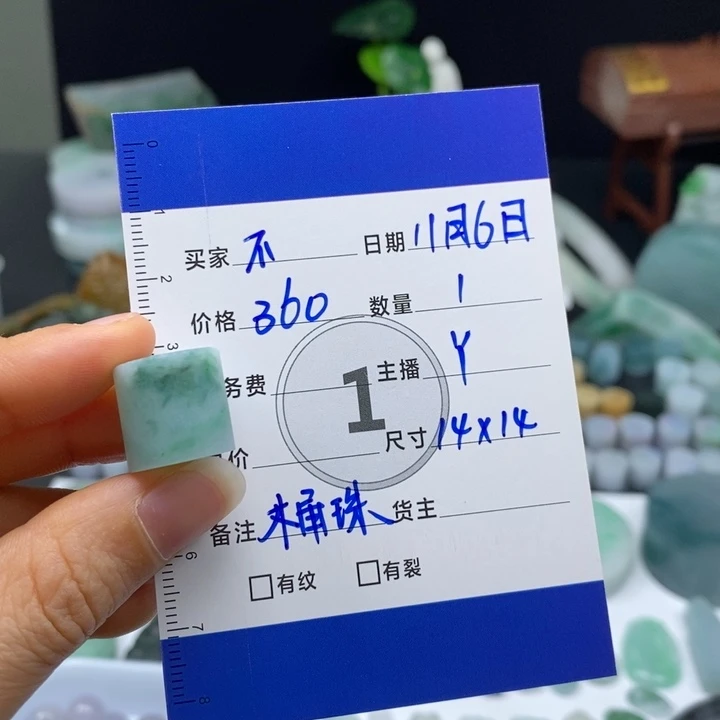 0
1
2
3
6
7
8
买家 不 日期 11月6日
价格 360 数量 1
务费 主播 Y
1
价 尺寸 14x14
备注 桶珠 货主
有纹 有裂